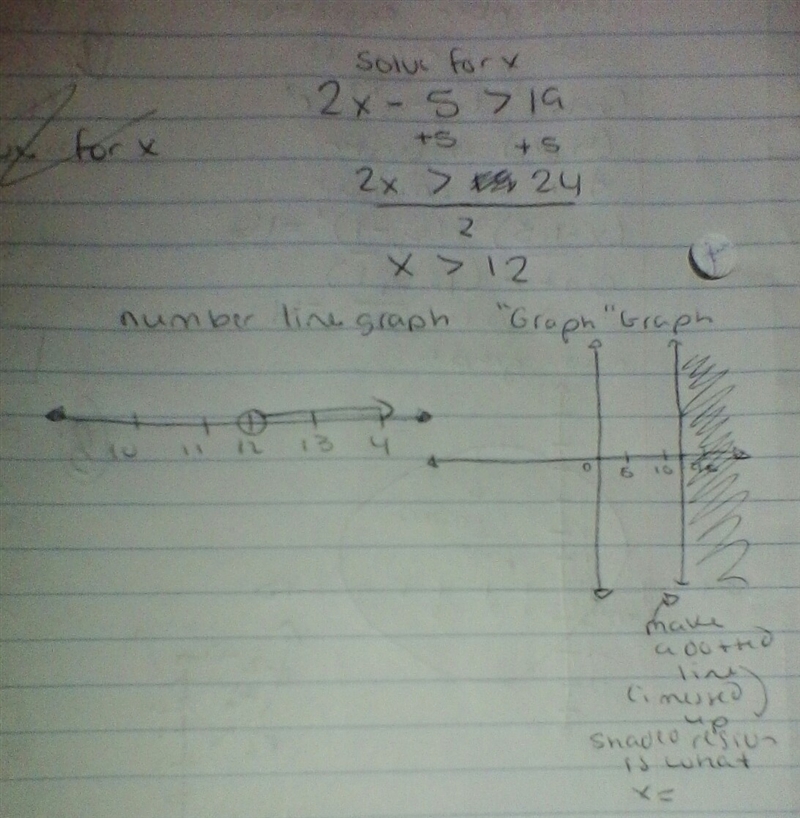 solve for x
2x - 5 > 19
+5 +5
for x
2x > 24
2
x > 12
number line graph "Graph" Graph
10 11 12 13 4
0 5 10
make
a dotted
line
(i messed)
up
shaded region
is what
x =